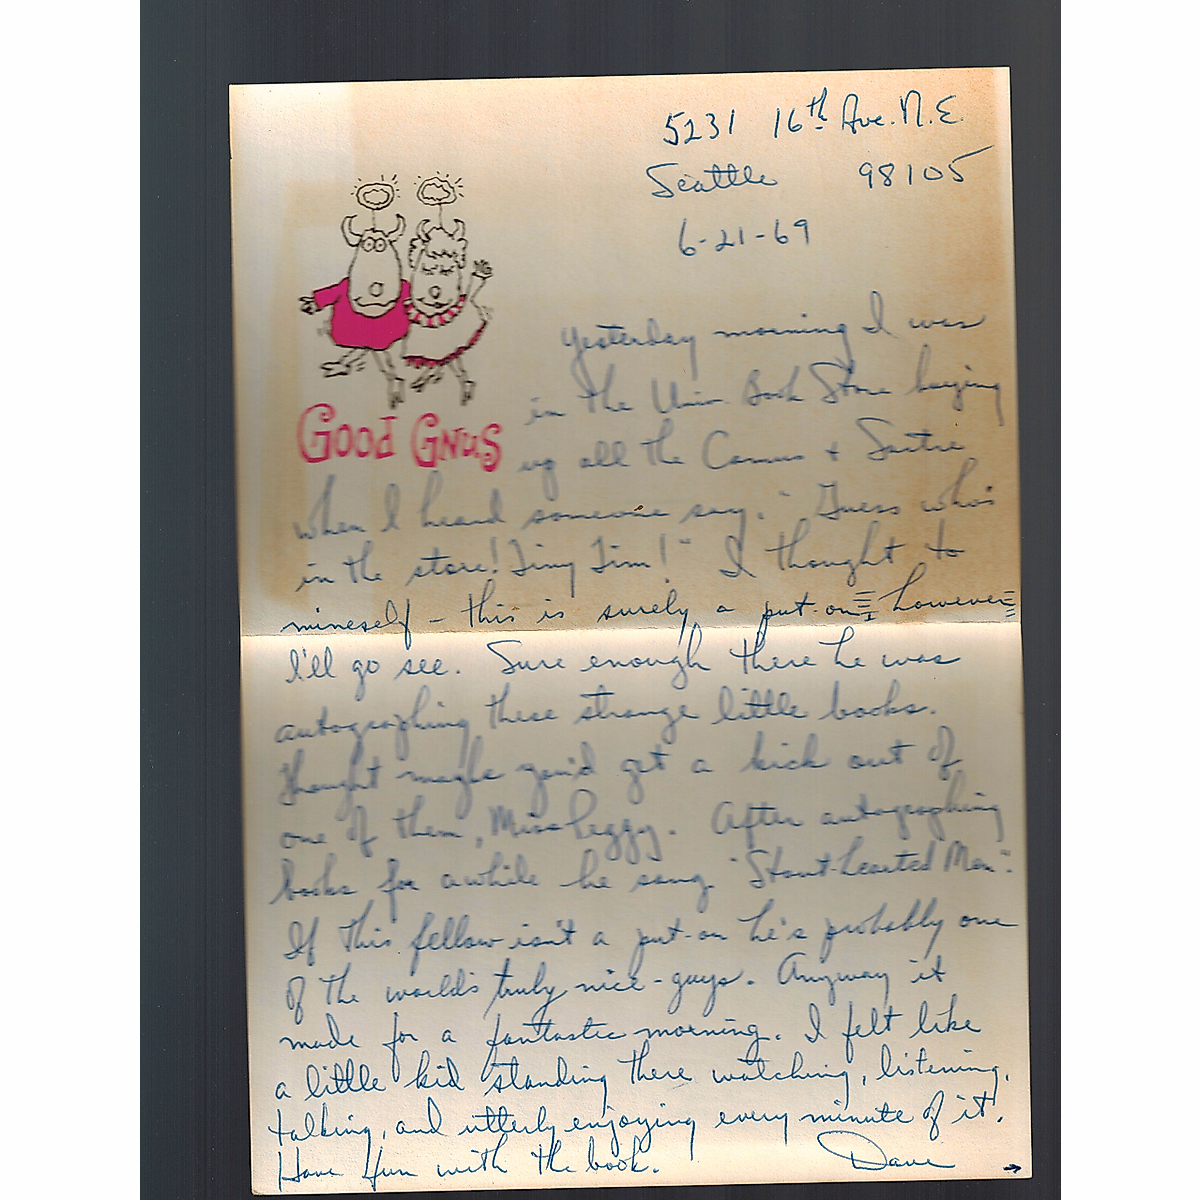 5231 16th Ave. N.E.
Seattle 98105
6-21-69
GOOD GNUS
Yesterday morning I was
in the Univ. Book Store buying
up all the Camus + Sartre
when I heard someone say, "Guess who's
in the store! Tiny Tim!" I thought to
mineself - this is surely a put-on, however
I'll go see. Sure enough there he was
autographing these strange little books.
Thought maybe you'd get a kick out of
one of them, Miss Peggy. After autographing
books for awhile he sang "Stout-hearted Men".
If this fellow isn't a put-on he's probably one
of the world's truly nice-guys. Anyway it
made for a fantastic morning. I felt like
a little kid standing there watching, listening,
talking, and utterly enjoying every minute of it.
Have fun with the book. Dave →